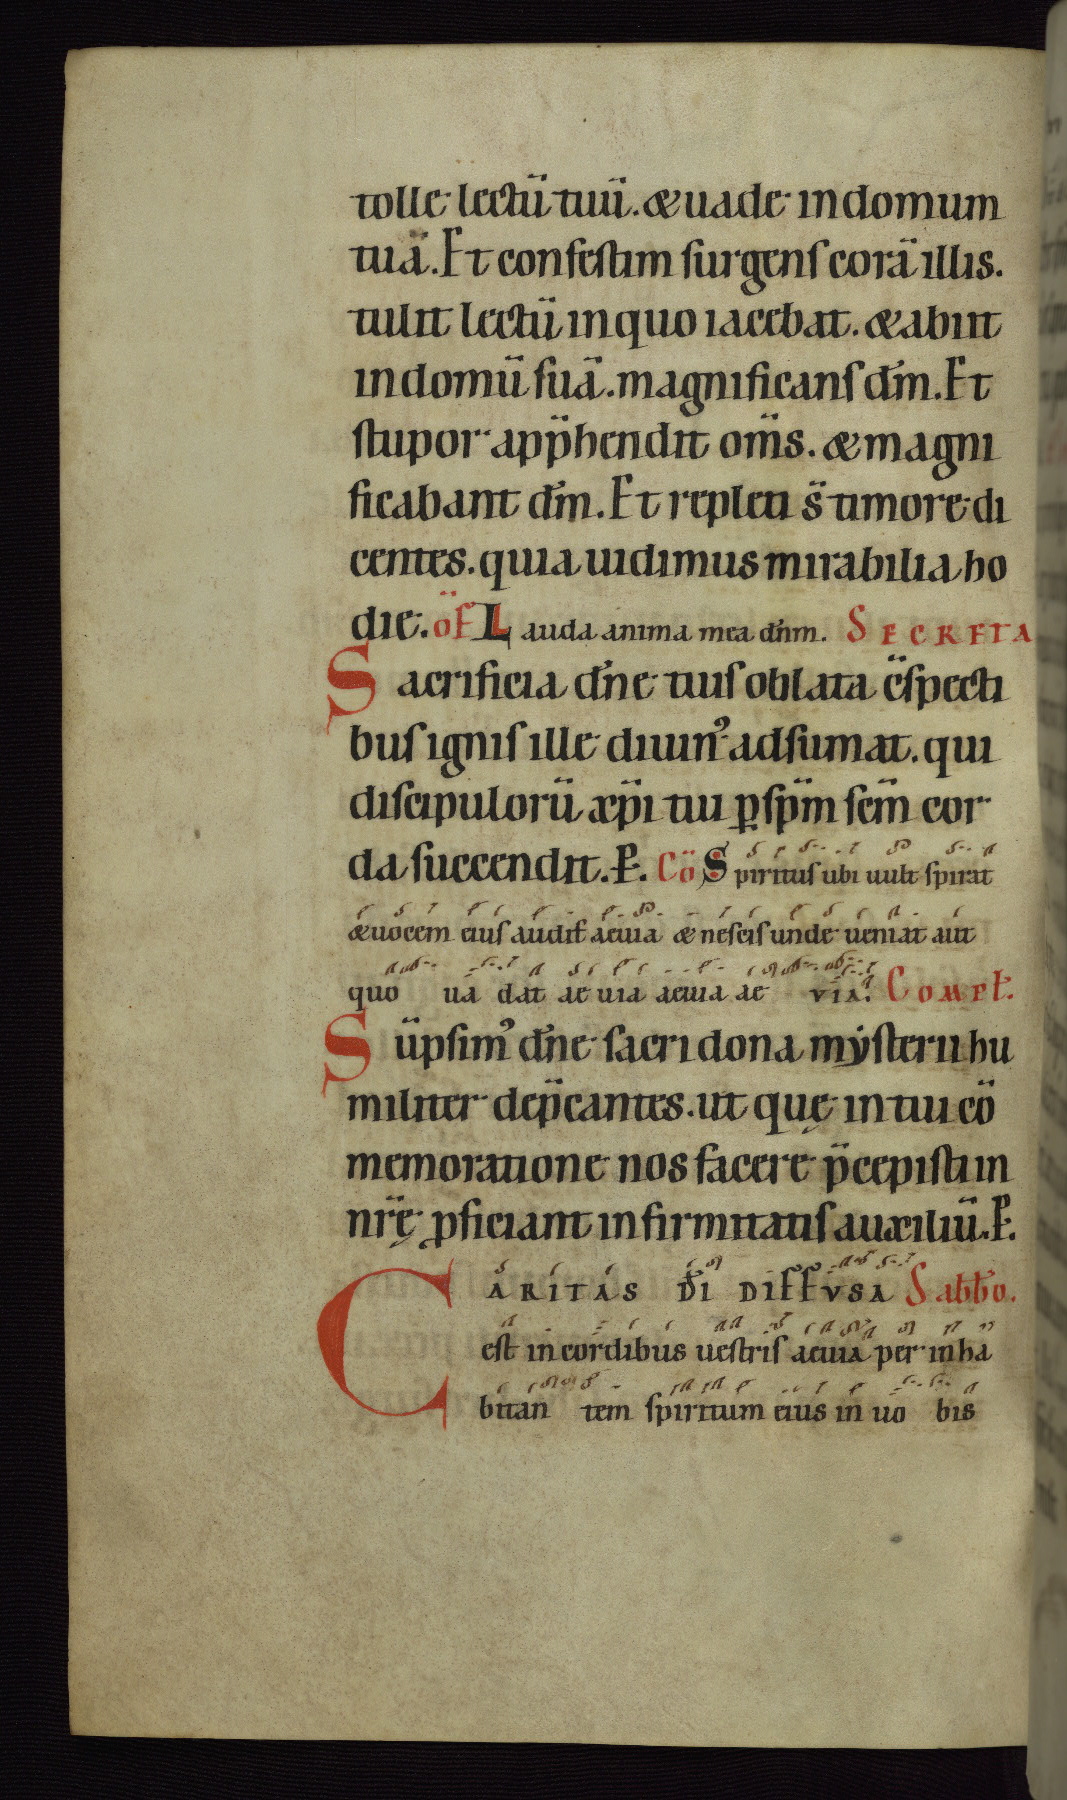 tolle lectū tuū. & uade in domum
tuā. Et confestim surgens corā illis.
tulit lectū in quo iacebat. & abiit
in domū suā. magnificans dm̄. Et
stupor app̄hendit om̄s. & magni
ficabant dm̄. Et repleti s̄ timore di
centes. quia uidimus mirabilia ho
die. OF Lauda anima mea dn̄m. SECRETA
Sacrificia dn̄e tuis oblata c̄specti
bus ignis ille diuin᾿ adsumat. qui
discipulorū xp̄i tui ꝑ sp̄m sc̄m cor
da succendit. P. Cō Spiritus ubi uult spirat
& uocem eius audis aeuia & nescis unde ueniat aut
quo uadat aeuia aeuia ae via. Compl.
Sūpsim᾿ dn̄e sacri dona mẏsterii hu
militer dep̄cantes. ut quę in tui cō
memoratione nos facere p̄cepisti in
nr̄ę ꝓficiant infirmitatis auxiliū. P.
CARITAS DI DIFFVSA Sabb̄o.
est in cordibus uestris aeuia per inha
bitantem spiritum eius in uobis